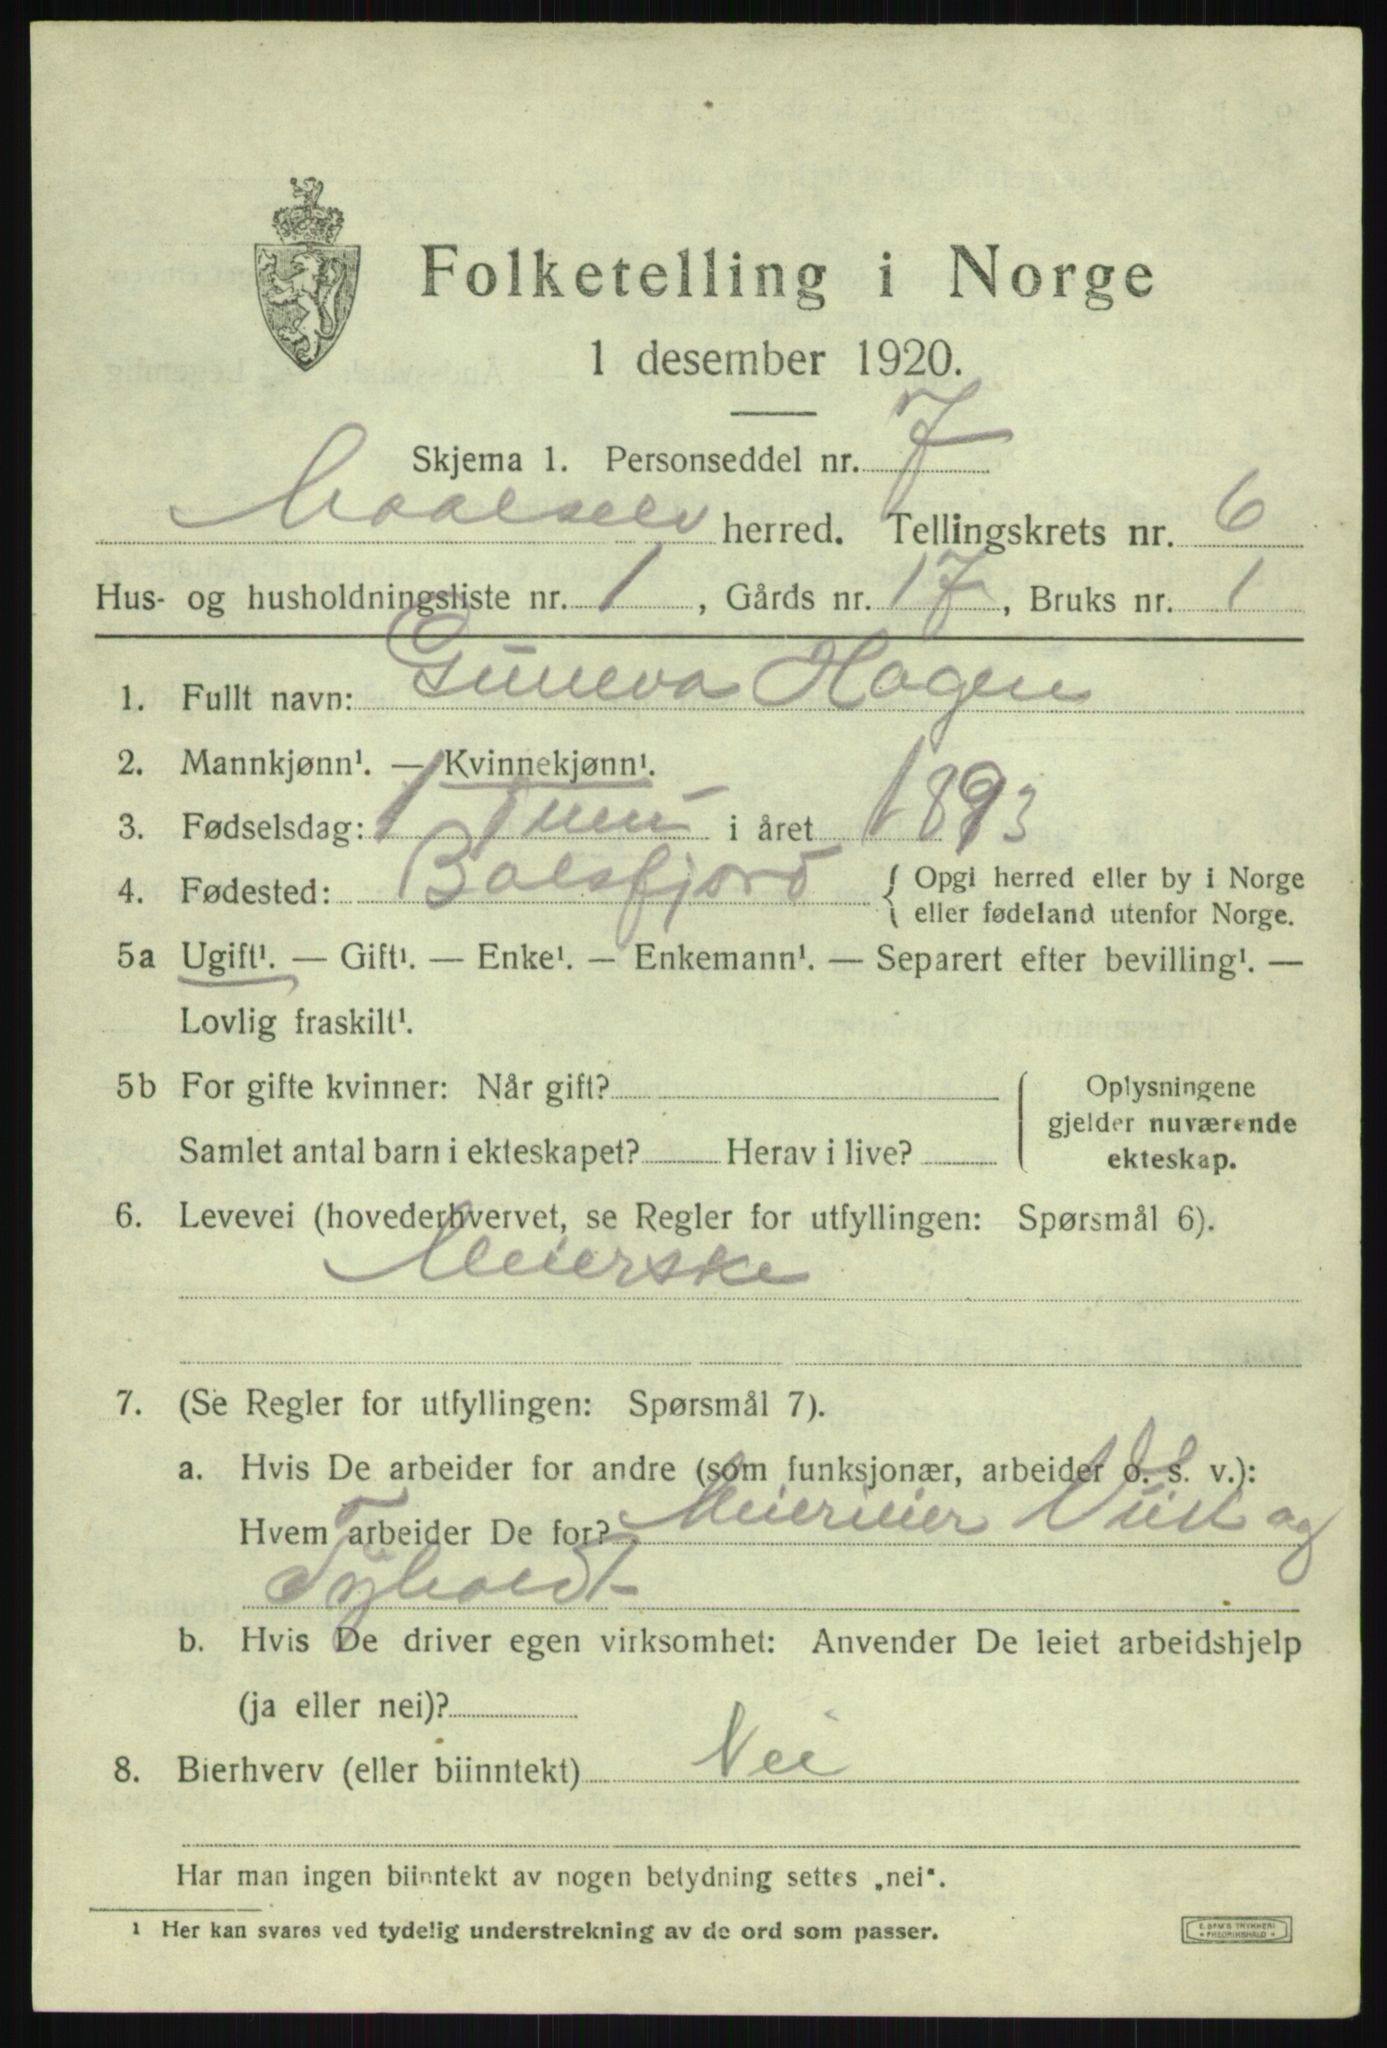 Folketelling i Norge
1 desember 1920.
Skjema 1. Personseddel nr. 7
Maalselv herred. Tellingskrets nr. 6
Hus- og husholdningsliste nr. 1, Gårds nr. 17, Bruks nr. 1
1. Fullt navn: Guneva Hagen
2. Mannkjønn¹. — Kvinnekjønn¹.
3. Fødselsdag: 1 Juni i året 1893
4. Fødested: Balsfjord { Opgi herred eller by i Norge
eller fødeland utenfor Norge.
5a Ugift¹. — Gift¹. — Enke¹. — Enkemann¹. — Separert efter bevilling¹. —
Lovlig fraskilt¹.
5b For gifte kvinner: Når gift?
Samlet antal barn i ekteskapet? Herav i live?
Oplysningene
gjelder nuværende
ekteskap.
6. Levevei (hovederhvervet, se Regler for utfyllingen: Spørsmål 6).
Meierske
7. (Se Regler for utfyllingen: Spørsmål 7).
a. Hvis De arbeider for andre (som funksjonær, arbeider o. s. v.):
Hvem arbeider De for? Meierieier og
b. Hvis De driver egen virksomhet: Anvender De leiet arbeidshjelp
(ja eller nei)?
8. Bierhverv (eller biinntekt) Nei
Har man ingen biinntekt av nogen betydning settes „nei“.
¹ Her kan svares ved tydelig understrekning av de ord som passer.
E. SEM'S TRYKKERI
FREDRIKSHALD